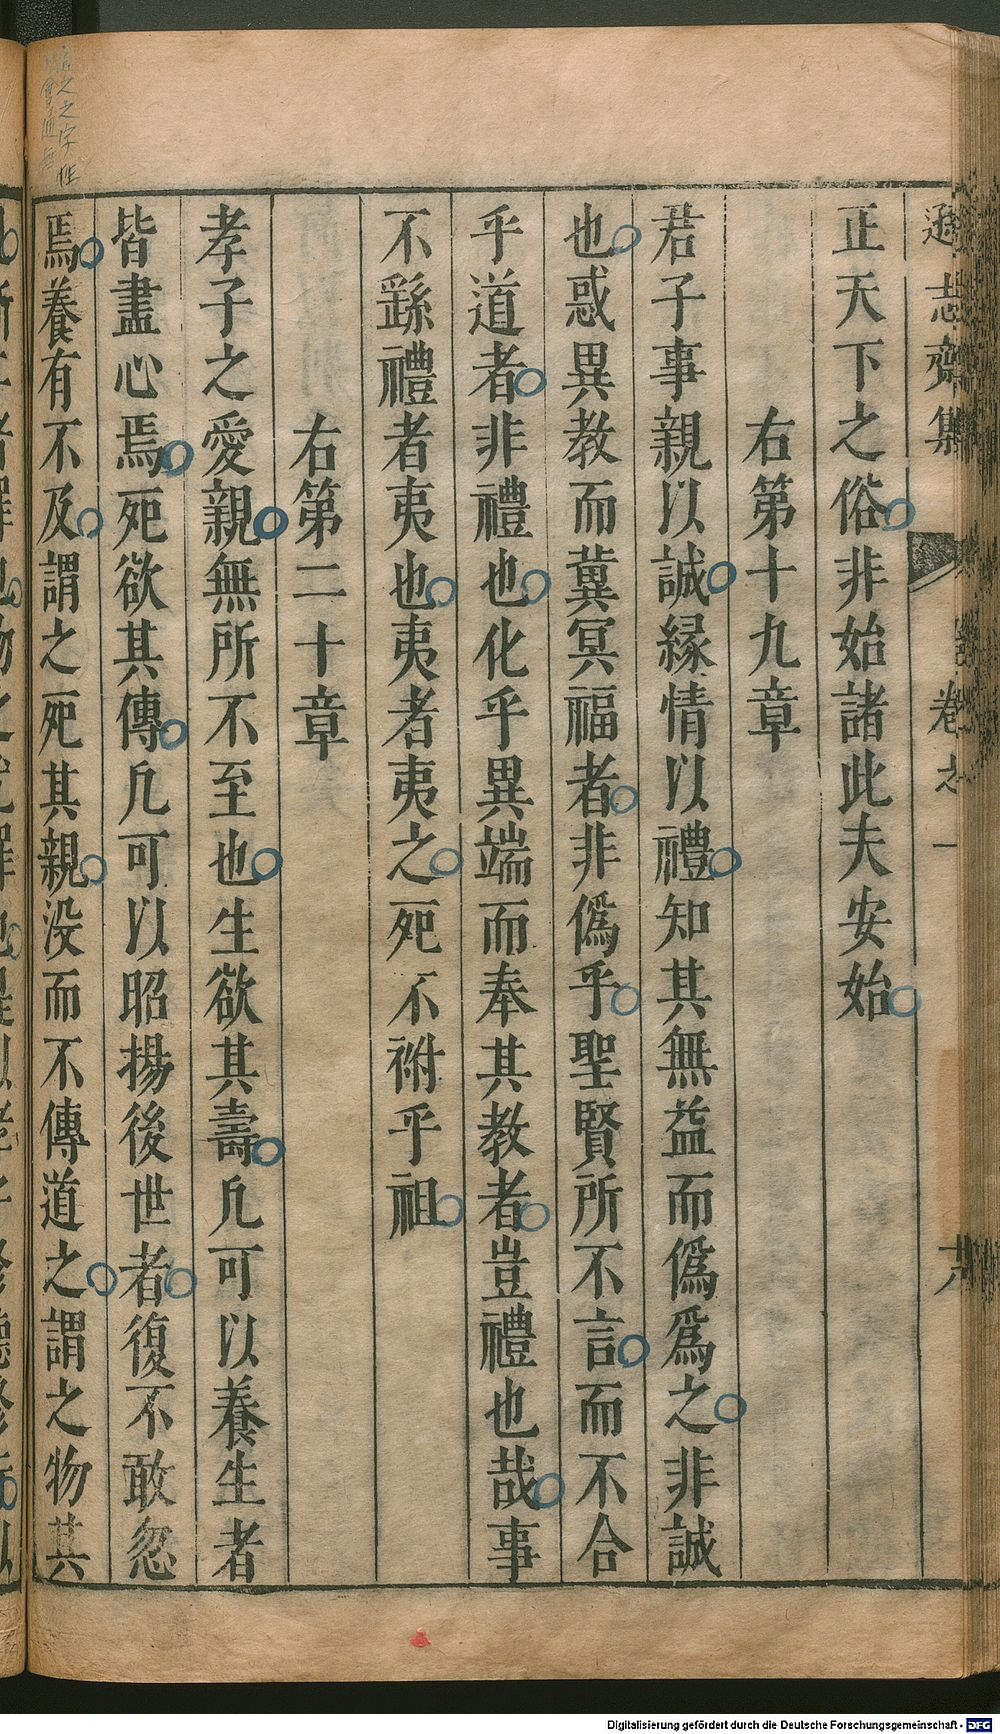 遜志齋集
卷之一
正天下之俗非始諸此夫安始
右第十九章
君子事親以誠緣情以禮知其無益而僞爲之非誠
也惑異教而冀冥福者非僞乎聖賢所不言而不合
乎道者非禮也化乎異端而奉其教者豈禮也哉事
不繇禮者夷也夷者夷之死不祔乎祖
右第二十章
孝子之愛親無所不至也生欲其壽凢可以養生者
皆盡心焉死欲其傳凢可以昭揚後世者復不敢忽
焉養有不及謂之死其親没而不傳道之謂之物其
Digitalisierung gefördert durch die Deutsche Forschungsgemeinschaft - DFG